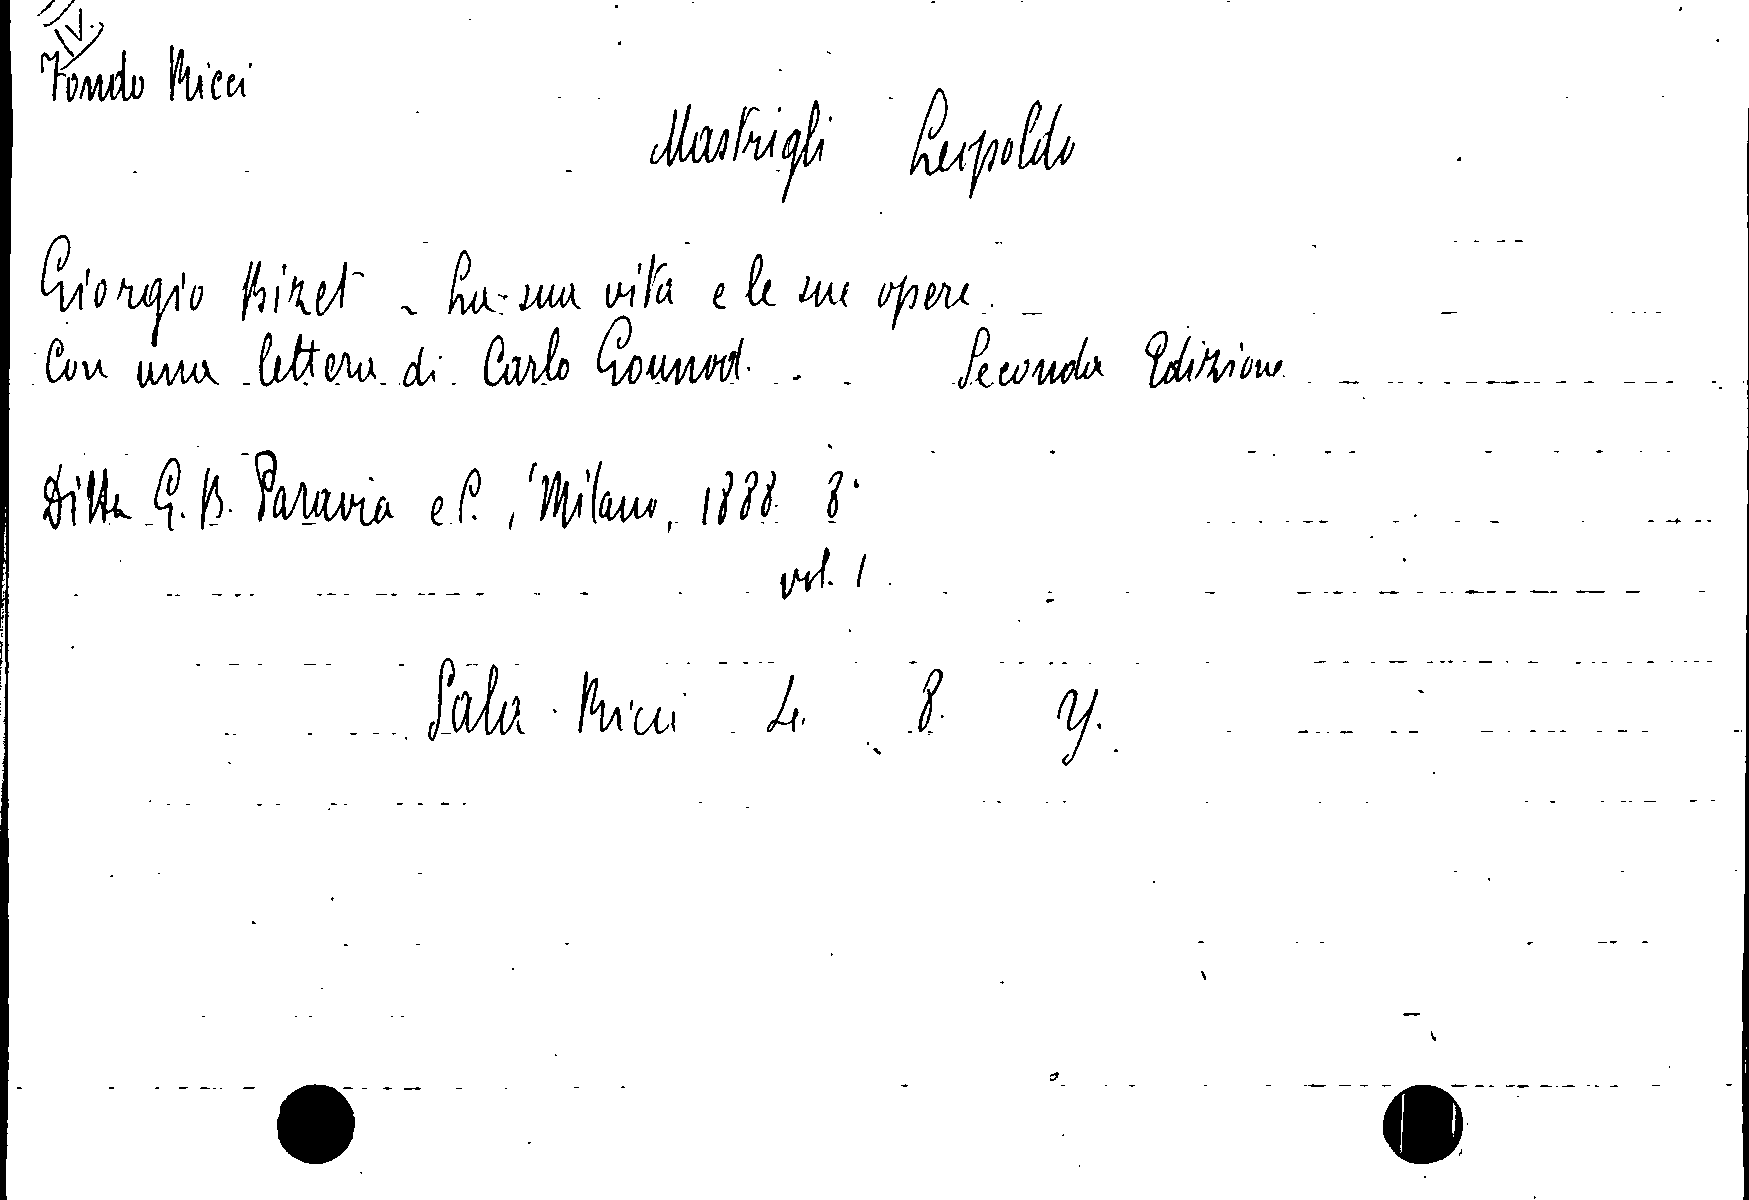 IV.
Fondo Ricci
Mastrigli Leopoldo
Giorgio Bizet - La sua vita e le sue opere.
Con una lettera di Carlo Gounod. Seconda Edizione
Ditta G. B. Paravia e C., Milano, 1888 8°
vol. 1
Sala Ricci 8. Y.